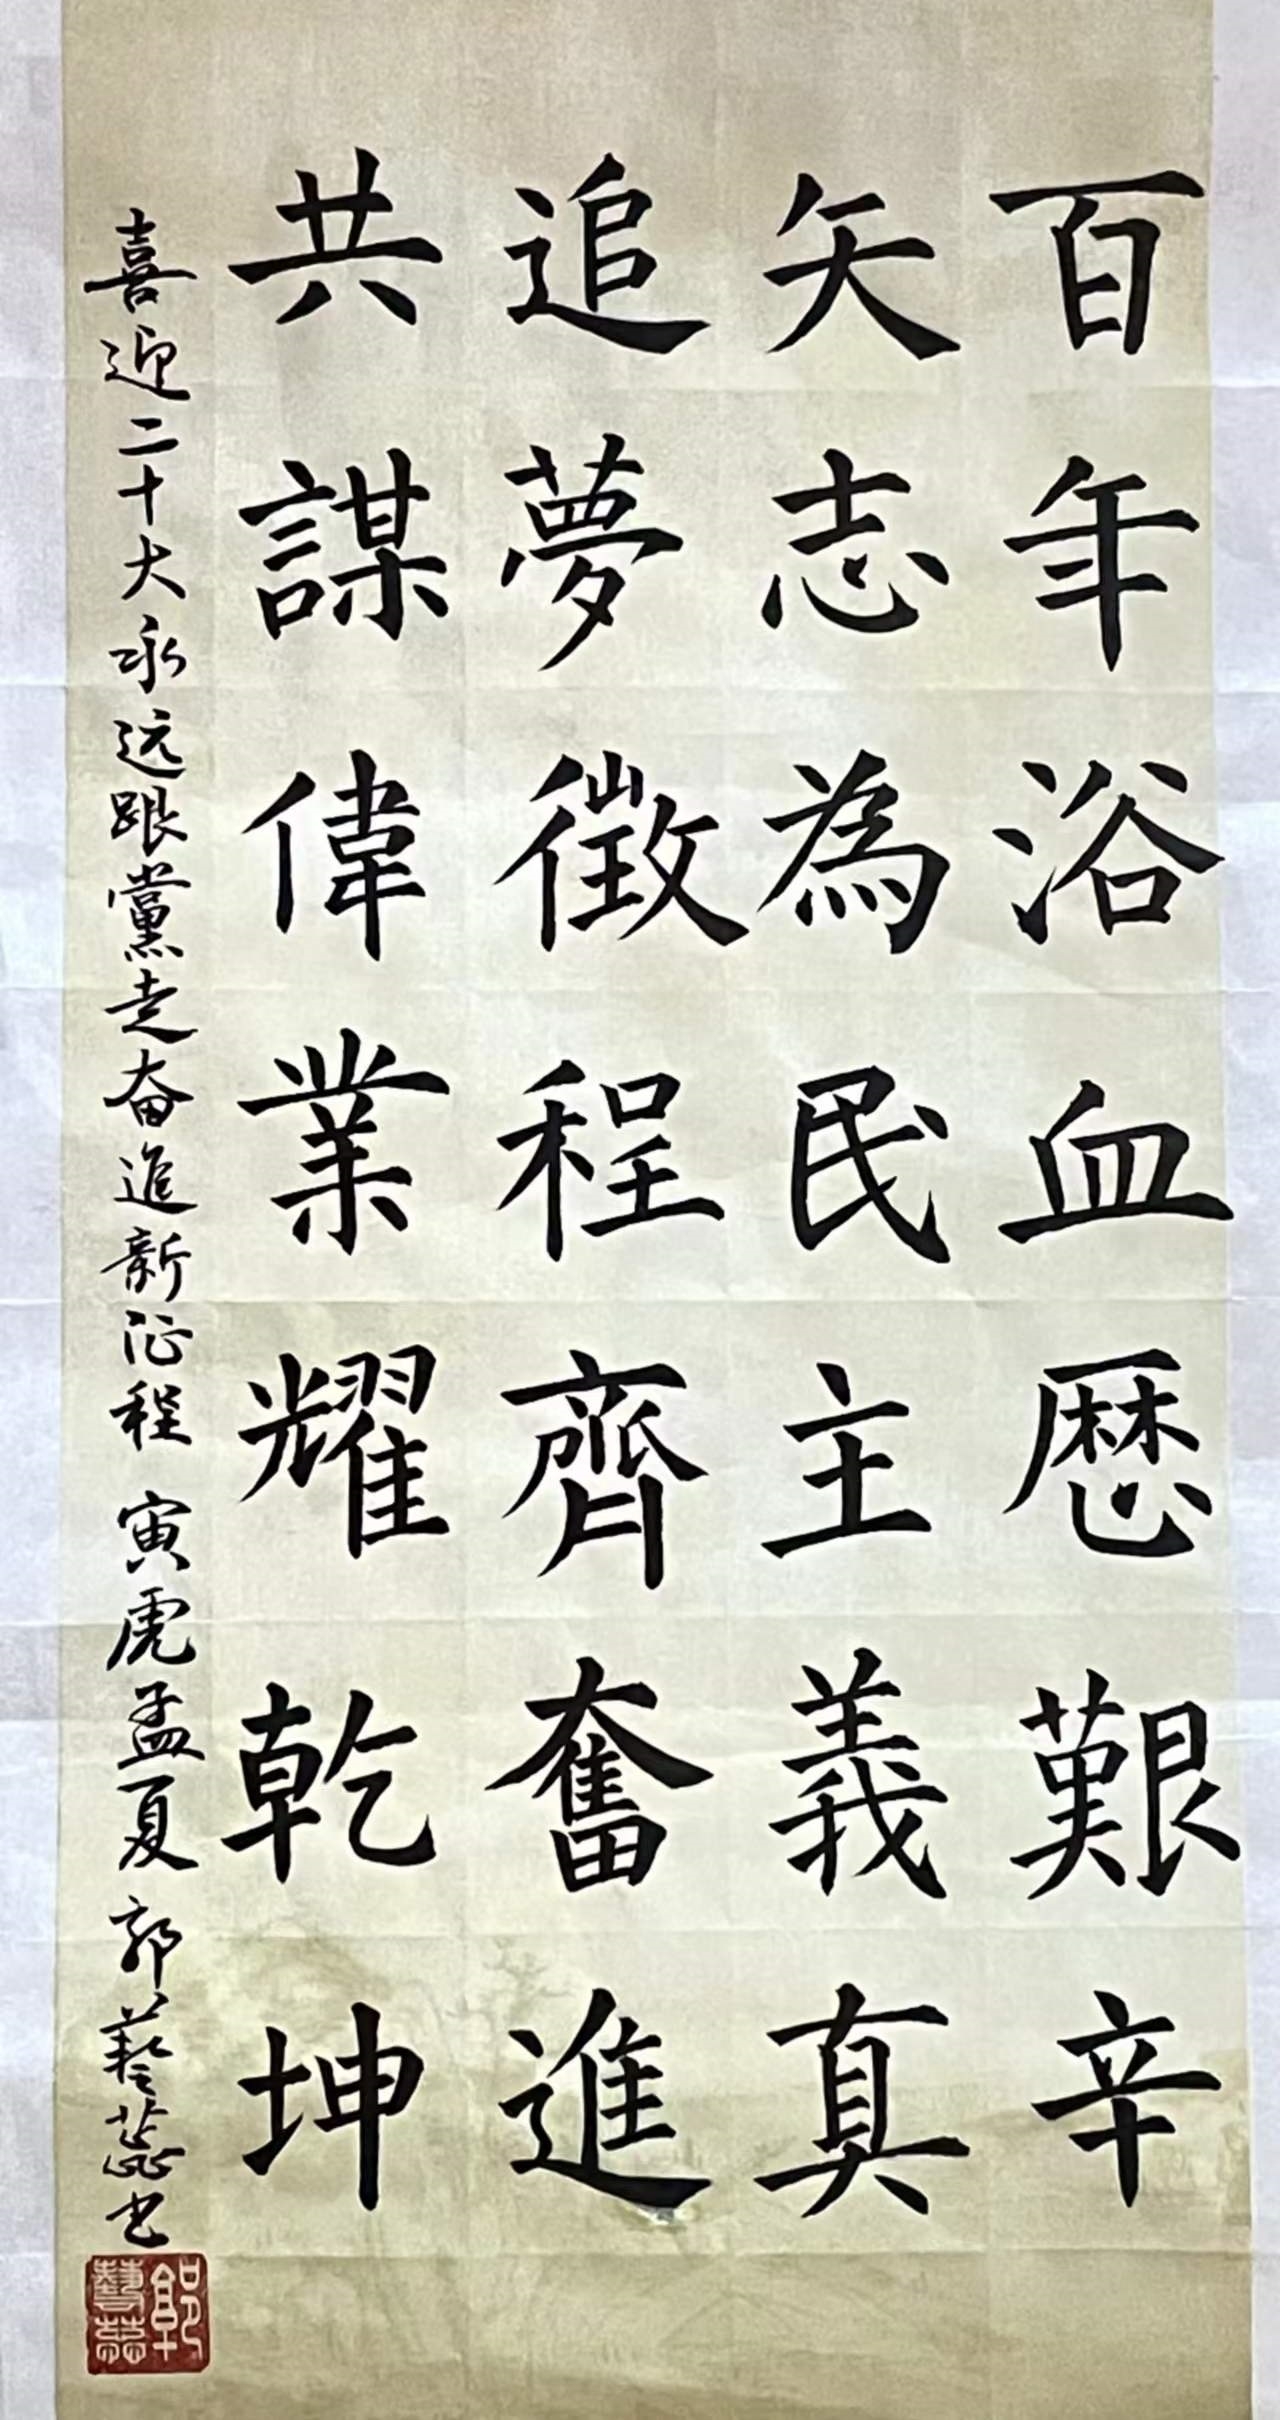 百年浴血歷艱辛
矢志為民主義真
追夢徵程齊奮進
共謀偉業耀乾坤
喜迎二十大永远跟黨走奋進新征程 寅虎孟夏 郭藝蕊书
郭藝蕊